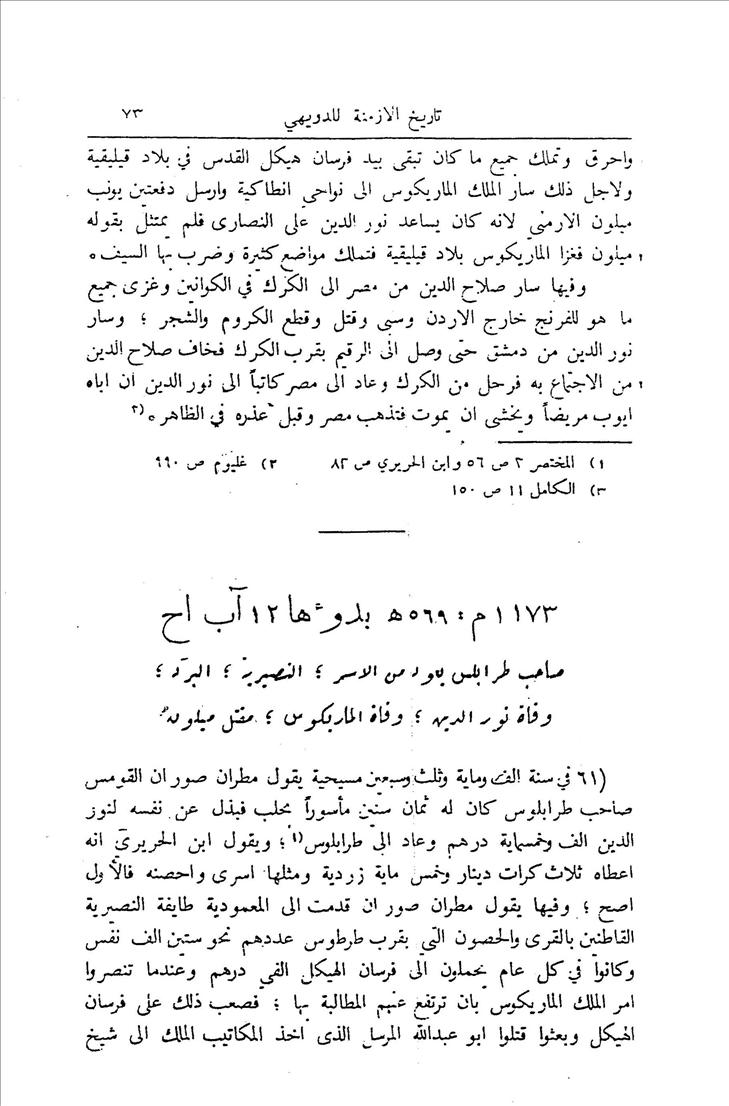 تاريخ الازمنة للدويهي ٧٣
واحرق وتملك جميع ما كان تبقى بيد فرسان هيكل القدس في بلاد قيليقية
ولاجل ذلك سار الملك الماريكوس الى نواحي انطاكية وارسل دفعتين يونب
ميلون الارمني لانه كان يساعد نور الدين على النصارى فلم يمتثل بقوله
ميلون فغزا الماريكوس بلاد قيليقية فتملك مواضع كثيرة وضرب بها السيف ٠
وفيها سار صلاح الدين من مصر الى الكرك في الكوانين وغزى جميع
ما هو للفرنج خارج الاردن وسبى وقتل وقطع الكروم والشجر ؛ وسار
نور الدين من دمشق حتى وصل الى الرقيم بقرب الكرك فخاف صلاح الدين
من الاجتماع به فرحل من الكرك وعاد الى مصر كاتباً الى نور الدين ان اباه
ايوب مريضاً ويخشى ان يموت فتذهب مصر وقبل عذره في الظاهر ٠(٣
١) المختصر ٣ ص ٥٦ وابن الحريري ص ٨٢ ٢) غليوم ص ٩٩٠
٣) الكامل ١١ ص ١٥٠
١١٧٣ م : ٥٦٩ ھ بدوءها ١٢ آب اح
صاحب طرابلس يعود من الاسر ؛ النصيرية ؛ البرد ؛
وفاة نور الدين ؛ وفاة الماريكوس ؛ مقتل ميلون
٦١) في سنة الف وماية وثلث وسبعين مسيحية يقول مطران صور ان القومس
صاحب طرابلوس كان له ثمان سنين مأسوراً بحلب فبذل عن نفسه لنور
الدين الف وخمسماية درهم وعاد الى طرابلوس(١ ؛ ويقول ابن الحريري انه
اعطاه ثلاث كرات دينار وخمس ماية زردية ومثلها اسرى واحصنه فالاول
اصح ؛ وفيها يقول مطران صور ان قدمت الى المعمودية طايفة النصيرية
القاطنين بالقرى والحصون التي بقرب طرطوس عددهم نحو ستين الف نفس
وكانوا في كل عام يحملون الى فرسان الهيكل الفي درهم وعندما تنصروا
امر الملك الماريكوس بان ترتفع عنهم المطالبة بها ؛ فصعب ذلك على فرسان
الهيكل وبعثوا قتلوا ابو عبدالله المرسل الذى اخذ المكاتيب الملك الى شيخ